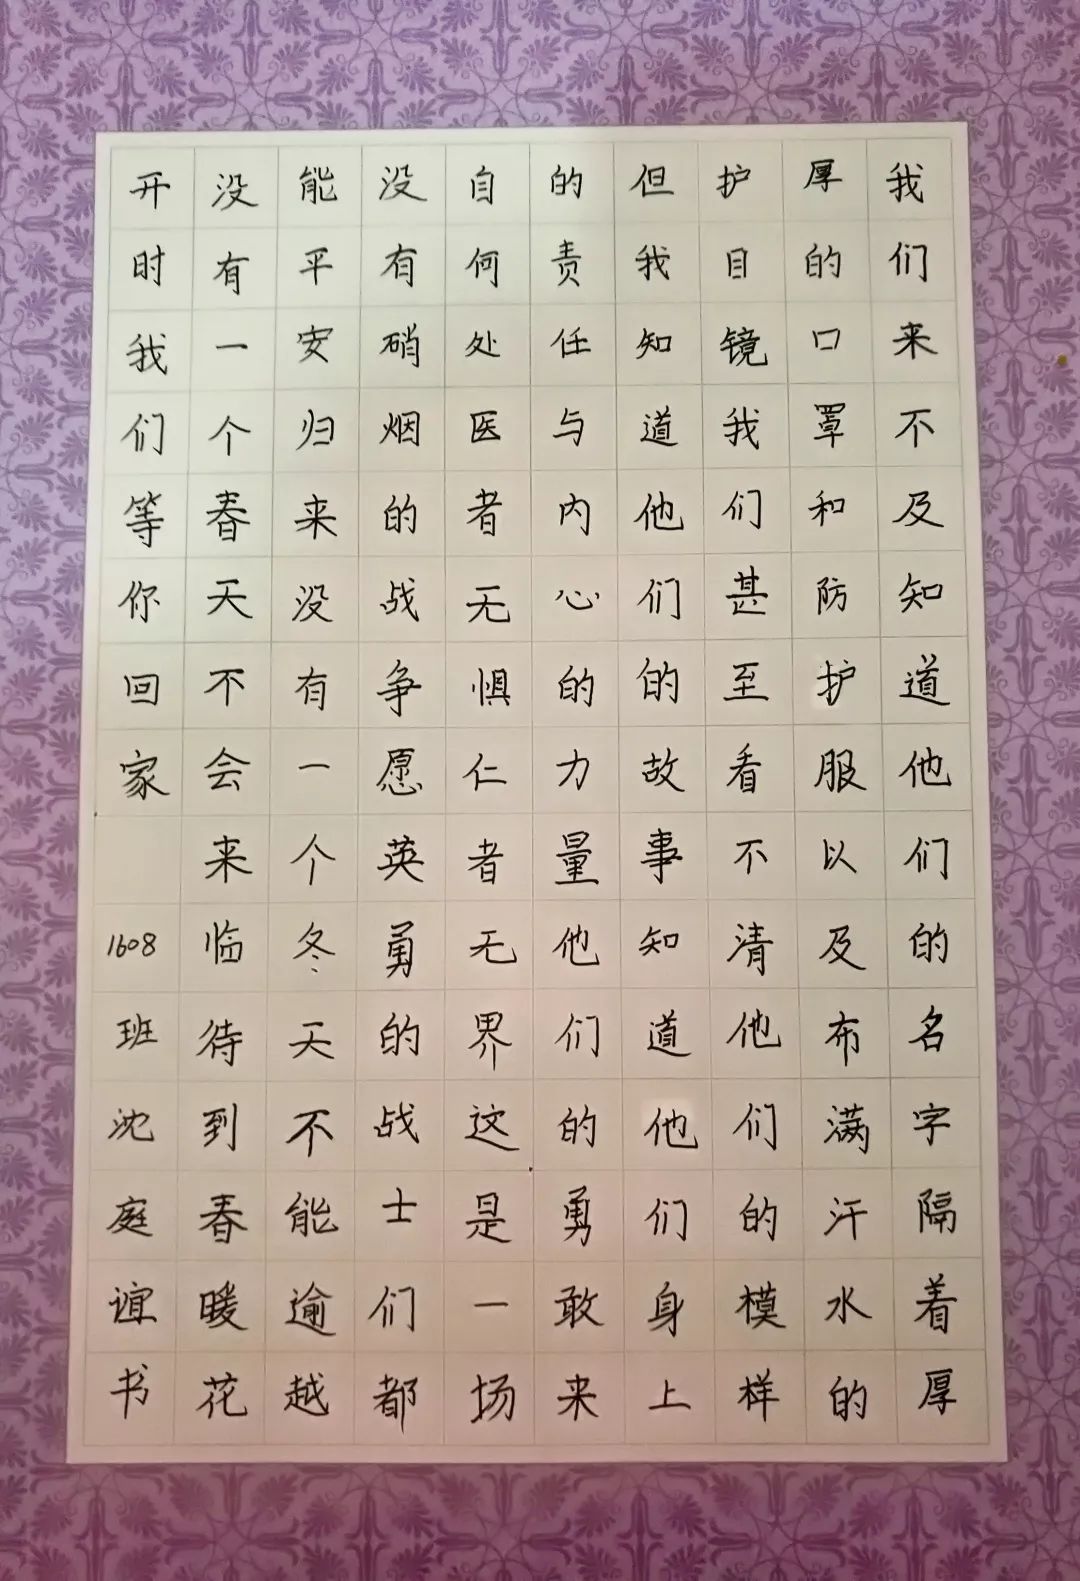 我们来不及知道他们的名字隔着厚
厚的口罩和防护服以及布满汗水的
护目镜我们甚至看不清他们的模样
但我知道他们的故事知道他们身上
的责任与内心的力量他们的勇敢来
自何处医者无惧仁者无界这是一场
没有硝烟的战争愿英勇的战士们都
能平安归来没有一个冬天不能逾越
没有一个春天不会来临待到春暖花
开时我们等你回家 1608班沈庭谊书